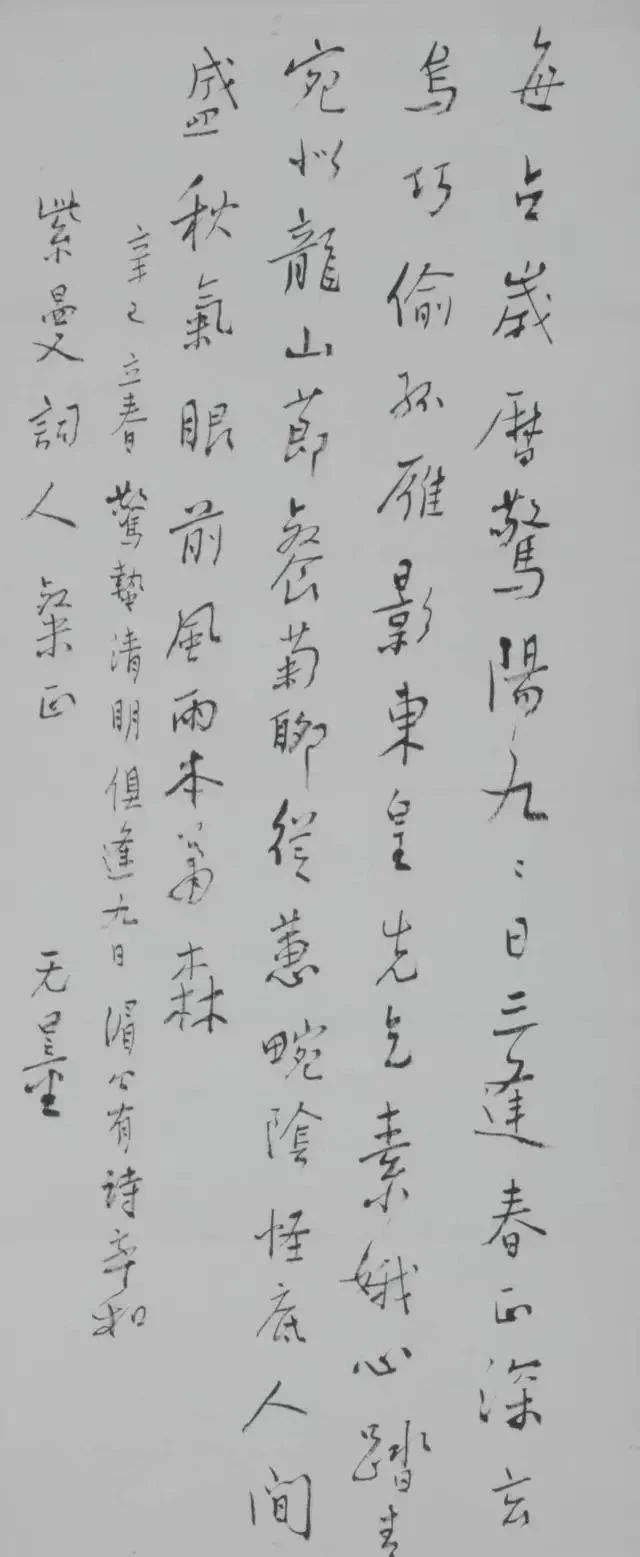 每占歲曆驚陽九〻日三逢春正深玄
烏巧偷孤雁影東皇先乞素娥心踏青
宛似龍山節餐菊聊從蕙畹陰怪底人間
盛秋氣眼前風雨本蕭森
辛巳立春驚蟄清明俱逢九日 公有詩率和
紫曼詞人粲正 无量